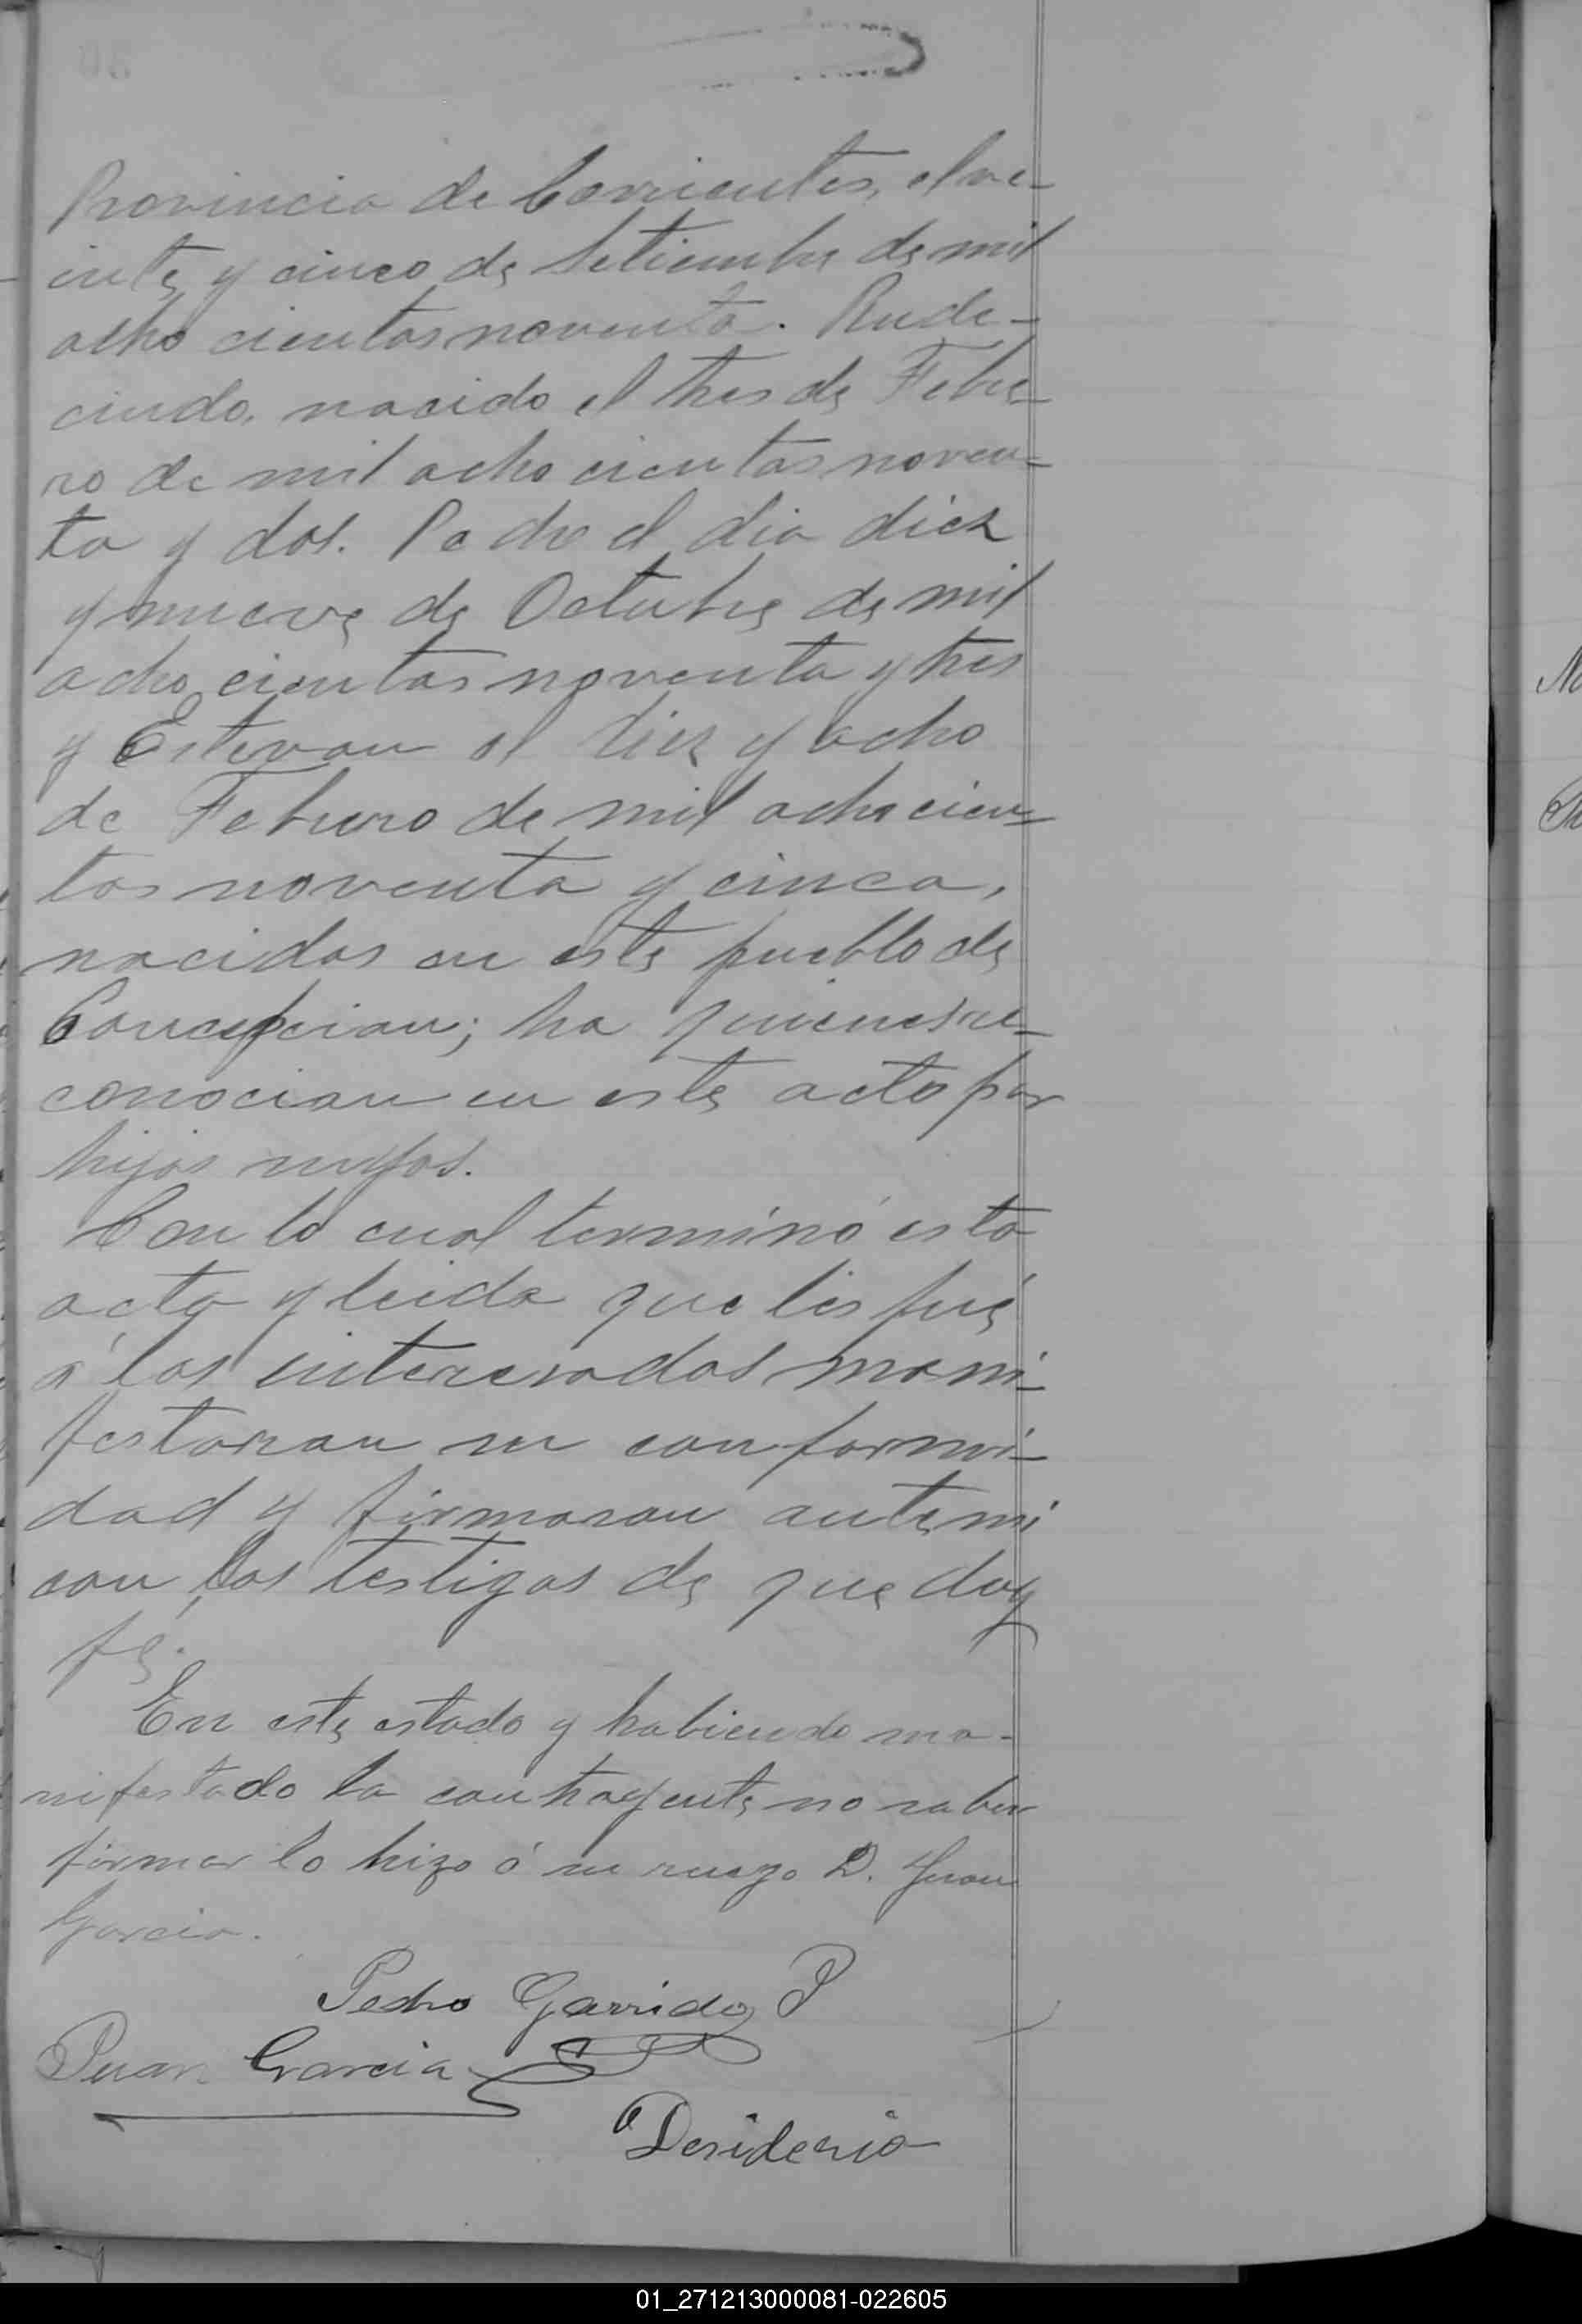 Provincia de Corrientes, el ve-
inte y cinco de Setiembre de mil
ocho cientos noventa. Rude-
cindo, nacido el tres de Febre-
ro de mil ocho cientos noven-
ta y dos. Pedro el dia diez
y nueve de Octubre de mil
ocho cientos noventa y tres
y Estevan el diez y ocho
de Febrero de mil ocho cien-
tos noventa y cinco,
nacidos en este pueblo de
Concepcion; ha quienes re-
conocian en este acto por
hijos suyos.
Con lo cual terminó esta
acta y leida que les fué
á los interesados mani-
festaron su conformi-
dad y firmaron ante mi
con los testigos de que doy
fe.
En este estado y habiendo ma-
nifestado la contrayente no saber
firmar lo hizo á su ruego D. Juan
Garcia.
Pedro Garrido P
Juan Garcia
Desiderio
No
01_271213000081-022605